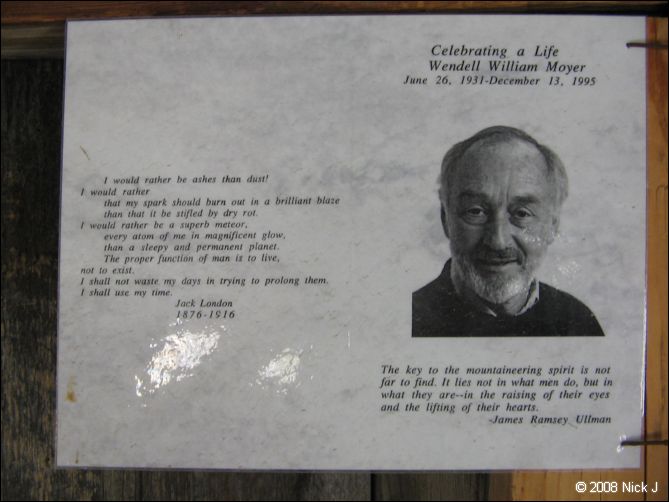 Celebrating a Life
Wendell William Moyer
June 26, 1931-December 13, 1995
I would rather be ashes than dust!
I would rather
that my spark should burn out in a brilliant blaze
than that it be stifled by dry rot.
I would rather be a superb meteor,
every atom of me in magnificent glow,
than a sleepy and permanent planet.
The proper function of man is to live,
not to exist.
I shall not waste my days in trying to prolong them.
I shall use my time.
Jack London
1876-1916
The key to the mountaineering spirit is not
far to find. It lies not in what men do, but in
what they are--in the raising of their eyes
and the lifting of their hearts.
-James Ramsey Ullman
© 2008 Nick J